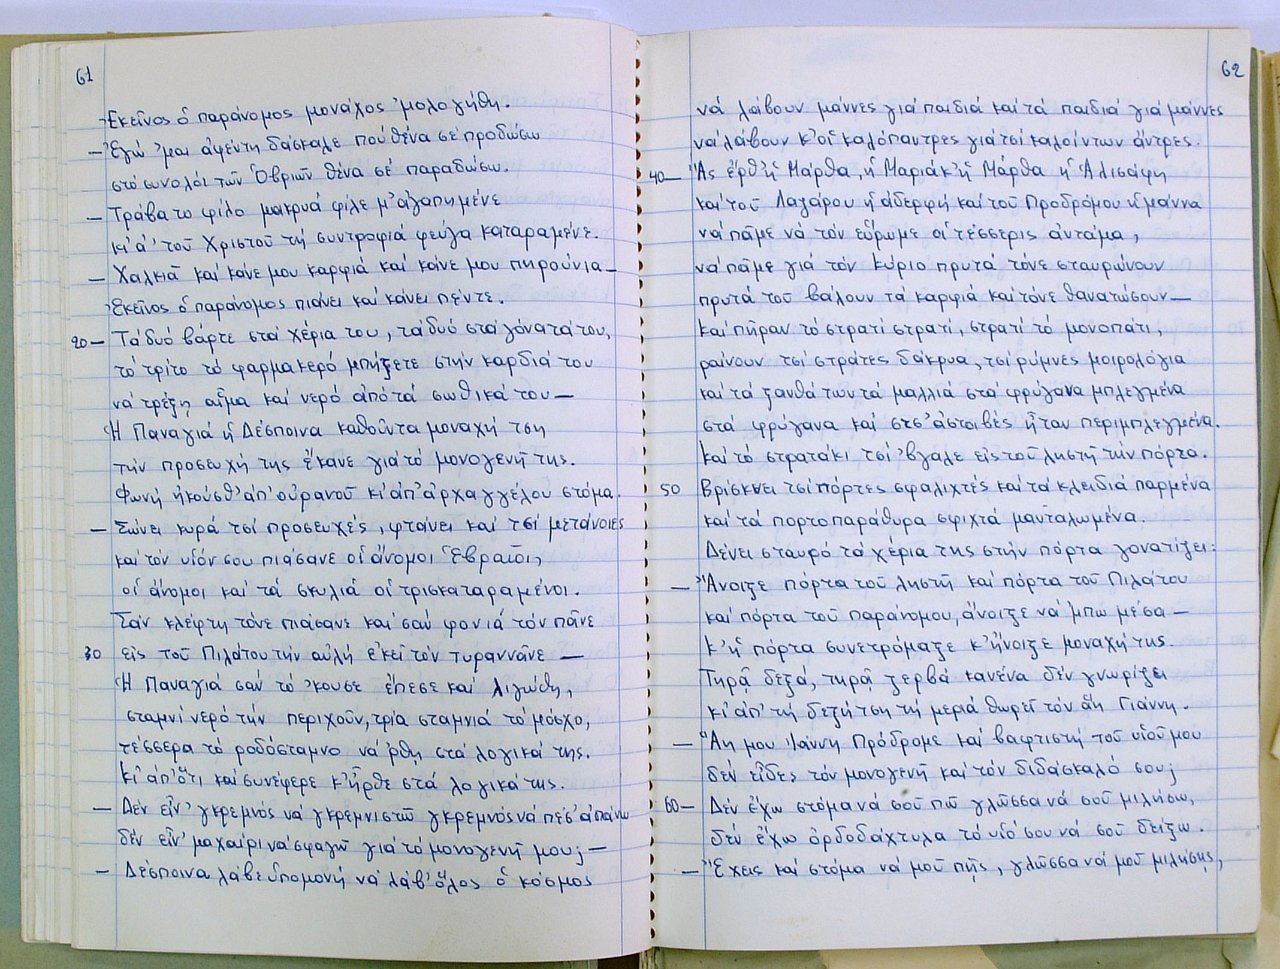 61
Ἐκεῖνος ὁ παράνομος μονάχος 'μολογήθη.
— Ἐγώ 'μαι ἀφέντη δάσκαλε πού θένα σέ προδώσω
στό συνολόι τῶν Ὁβριῶν θένα σέ παραδώσω.
— Τράβα το φίλο μακρυά φίλε μ' ἀγαπημένε
κι ἀ' τοῦ Χριστοῦ τή συντροφιά φεύγα καταραμένε.
— Χαλκιᾶ καί κάνε μου καρφιά καί κάνε μου πηρούνια —
Ἐκεῖνος ὁ παράνομος πιάνει καί κάνει πέντε.
20 — Τά δυό βάρτε στά χέρια του, τά δυό στά γόνατά του,
τό τρίτο τό φαρμακερό μπήξετε στήν καρδιά του
νά τρέξῃ αἷμα καί νερό ἀπό τά σωθικά του —
Ἡ Παναγιά ἡ Δέσποινα καθοῦντα μοναχή τση
τήν προσευχή της ἔκανε γιά τό μονογενῆ της.
Φωνή ἠκούσθ' ἀπ' οὐρανοῦ κι ἀπ' ἀρχαγγέλου στόμα.
— Σώνει κυρά τσί προσευχές, φτάνει καί τσί μετάνοιες
καί τόν υἱόν σου πιάσανε οἱ ἄνομοι Ἑβραῖοι,
οἱ ἄνομοι καί τά σκυλιά οἱ τρισκαταραμένοι.
Σάν κλέφτη τόνε πιάσανε καί σάν φονιά τόν πᾶνε
30 εἰς τοῦ Πιλάτου τήν αὐλή ἐκεῖ τόν τυραννᾶνε —
Ἡ Παναγιά σάν τό 'κουσε ἔπεσε καί λιγώθη,
σταμνί νερό τήν περιχοῦν, τρία σταμνιά τό μόσχο,
τέσσερα τό ροδόσταμνο νά 'ρθῃ στά λογικά της.
Κι ἀπ' ὅτι καί συνέφερε κ' ἦρθε στά λογικά της.
— Δέν εἶν' γκρεμνός νά γκρεμνιστῶ γκρεμνός νά πέσ' ἀπάνω
δέν εἶν' μαχαίρι νά σφαγῶ γιά τό μονογενῆ μου; —
— Δέσποινα λάβε ὑπομονή νά λάβ' ὅλος ὁ κόσμος
62
νά λάβουν μάννες γιά παιδιά καί τά παιδιά γιά μάννες
νά λάβουν κ' οἱ καλόπαντρες γιά τσί καλοί ντων ἄντρες.
40 — Ἄς ἐρθ' ἡ Μάρθα, ἡ Μαριάκ' ἡ Μάρθα ἡ Ἀλισάφη
καί τοῦ Λαζάρου ἡ ἀδερφή καί τοῦ Προδρόμου ἡ μάννα
νά πᾶμε νά τον εὕρωμε οἱ τέσσερις ἀντάμα,
νά πᾶμε γιά τόν Κύριο πρυτά τόνε σταυρώνουν
πρυτά τοῦ βάλουν τά καρφιά καί τόνε θανατώσουν —
Καί πῆραν τό στρατί στρατί, στρατί τό μονοπάτι,
ραίνουν τσί στράτες δάκρυα, τσί ρύμνες μοιρολόγια
καί τά ξανθά των τά μαλλιά στά φρύγανα μπλεγμένα
στά φρύγανα καί στσ' ἀστοιβές ἦταν περιμπλεγμένα.
Καί τό στρατάκι τσί 'βγαλε εἰς τοῦ ληστῆ τήν πόρτα.
50 Βρίσκνει τσί πόρτες σφαλιχτές καί τά κλειδιά παρμένα
καί τά πορτοπαράθυρα σφιχτά μανταλωμένα.
Δένει σταυρό τά χέρια της στήν πόρτα γονατίζει:
— Ἄνοιξε πόρτα τοῦ ληστῆ καί πόρτα τοῦ Πιλάτου
καί πόρτα τοῦ παράνομου, ἄνοιξε νά 'μπω μέσα —
Κ' ἡ πόρτα συνετρόμαξε κ' ἤνοιξε μοναχή της.
Τηρᾷ δεξά, τηρᾷ ζερβά κανένα δέν γνωρίζει
κι ἀπ' τή δεξή τση τή μεριά θωρεῖ τόν ἅη Γιάννη.
— Ἅη μου Γιάννη Πρόδρομε καί βαφτιστή τοῦ υἱοῦ μου
δέν εἶδες τόν μονογενῆ καί τόν διδάσκαλό σου;
60 — Δέν ἔχω στόμα νά σοῦ πῶ γλῶσσα νά σοῦ μιλήσω,
δέν ἔχω ὀρδοδάχτυλα τό υἱό σου νά σοῦ δείξω.
— Ἔχεις καί στόμα νά μοῦ πῇς, γλῶσσα νά μοῦ μιλήσῃς,